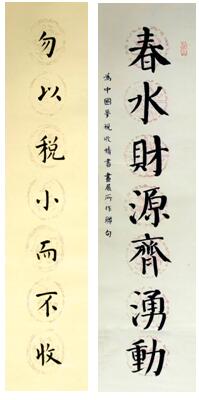 春水財源齊湧動
為中國夢稅收情書畫展所作聯句
勿以税小而不收